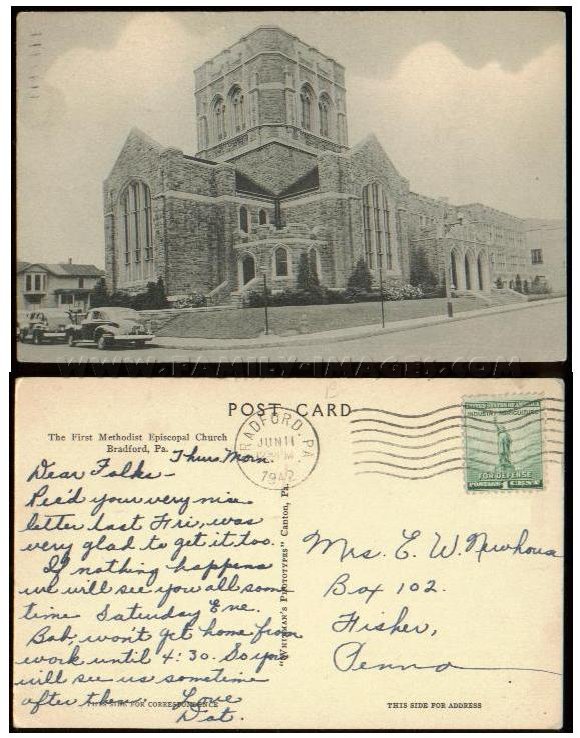 WWW.FAMILY-IMAGES.COM
POST CARD
The First Methodist Episcopal Church
Bradford, Pa.
BRADFORD, PA.
JUN 11
1942
UNITED STATES OF AMERICA
INDUSTRY AGRICULTURE
FOR DEFENSE
POSTAGE 1 CENT
Thurs Morn.
Dear Folks—
Rec'd your very nice
letter last Fri, was
very glad to get it too.
If nothing happens
we will see you all some
time Saturday Eve.
Bob, won't get home from
work until 4:30. So you
will see us sometime
after then. Love
Dot.
"WHITEMAN'S PHOTOTYPES" Canton, Pa.
Mrs. E. W. Newhouse
Box 102.
Fisher,
Penna
THIS SIDE FOR CORRESPONDENCE
THIS SIDE FOR ADDRESS